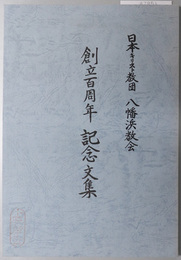 日本キリスト教団 八幡浜教会
創立百周年 記念文集